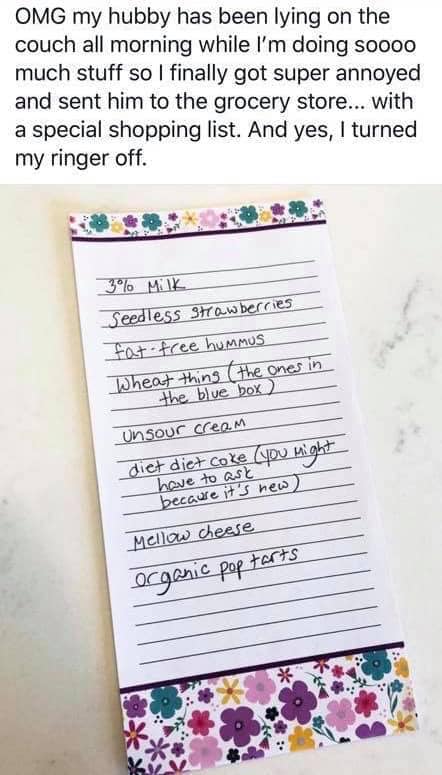 OMG my hubby has been lying on the
couch all morning while I'm doing soooo
much stuff so I finally got super annoyed
and sent him to the grocery store... with
a special shopping list. And yes, I turned
my ringer off.
3% Milk
Seedless strawberries
fat-free hummus
Wheat thing (the ones in
the blue box)
Unsour cream
diet diet coke (you might
have to ask
because it's new)
Mellow cheese
organic pop tarts